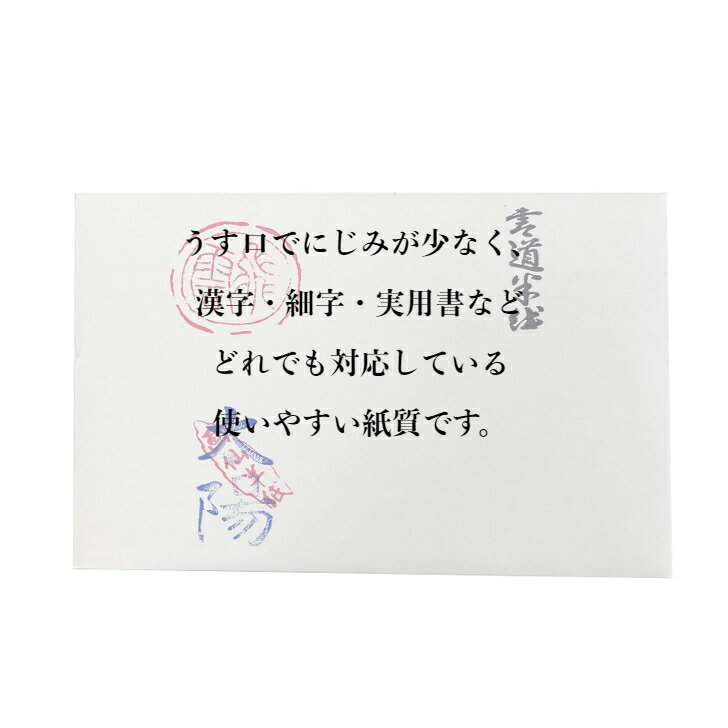 うす口でにじみが少なく、
漢字・細字・実用書など
どれでも対応している
使いやすい紙質です。
書道半紙
太陽